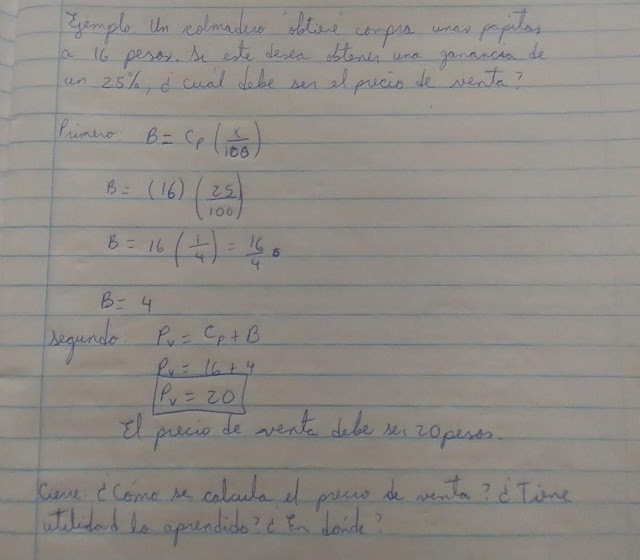 Ejemplo. Un colmadero obtiene compra unas papitas
a 16 pesos. Si este desea obtener una ganancia de
un 25%, ¿cuál debe ser el precio de venta?
Primero: B = Cp (x/100)
B = (16) (25/100)
B = 16 (1/4) = 16/4
B = 4
Segundo: Pv = Cp + B
Pv = 16 + 4
Pv = 20
El precio de venta debe ser 20 pesos.
Cierre: ¿Cómo se calcula el precio de venta? ¿Tiene
utilidad lo aprendido? ¿En dónde?